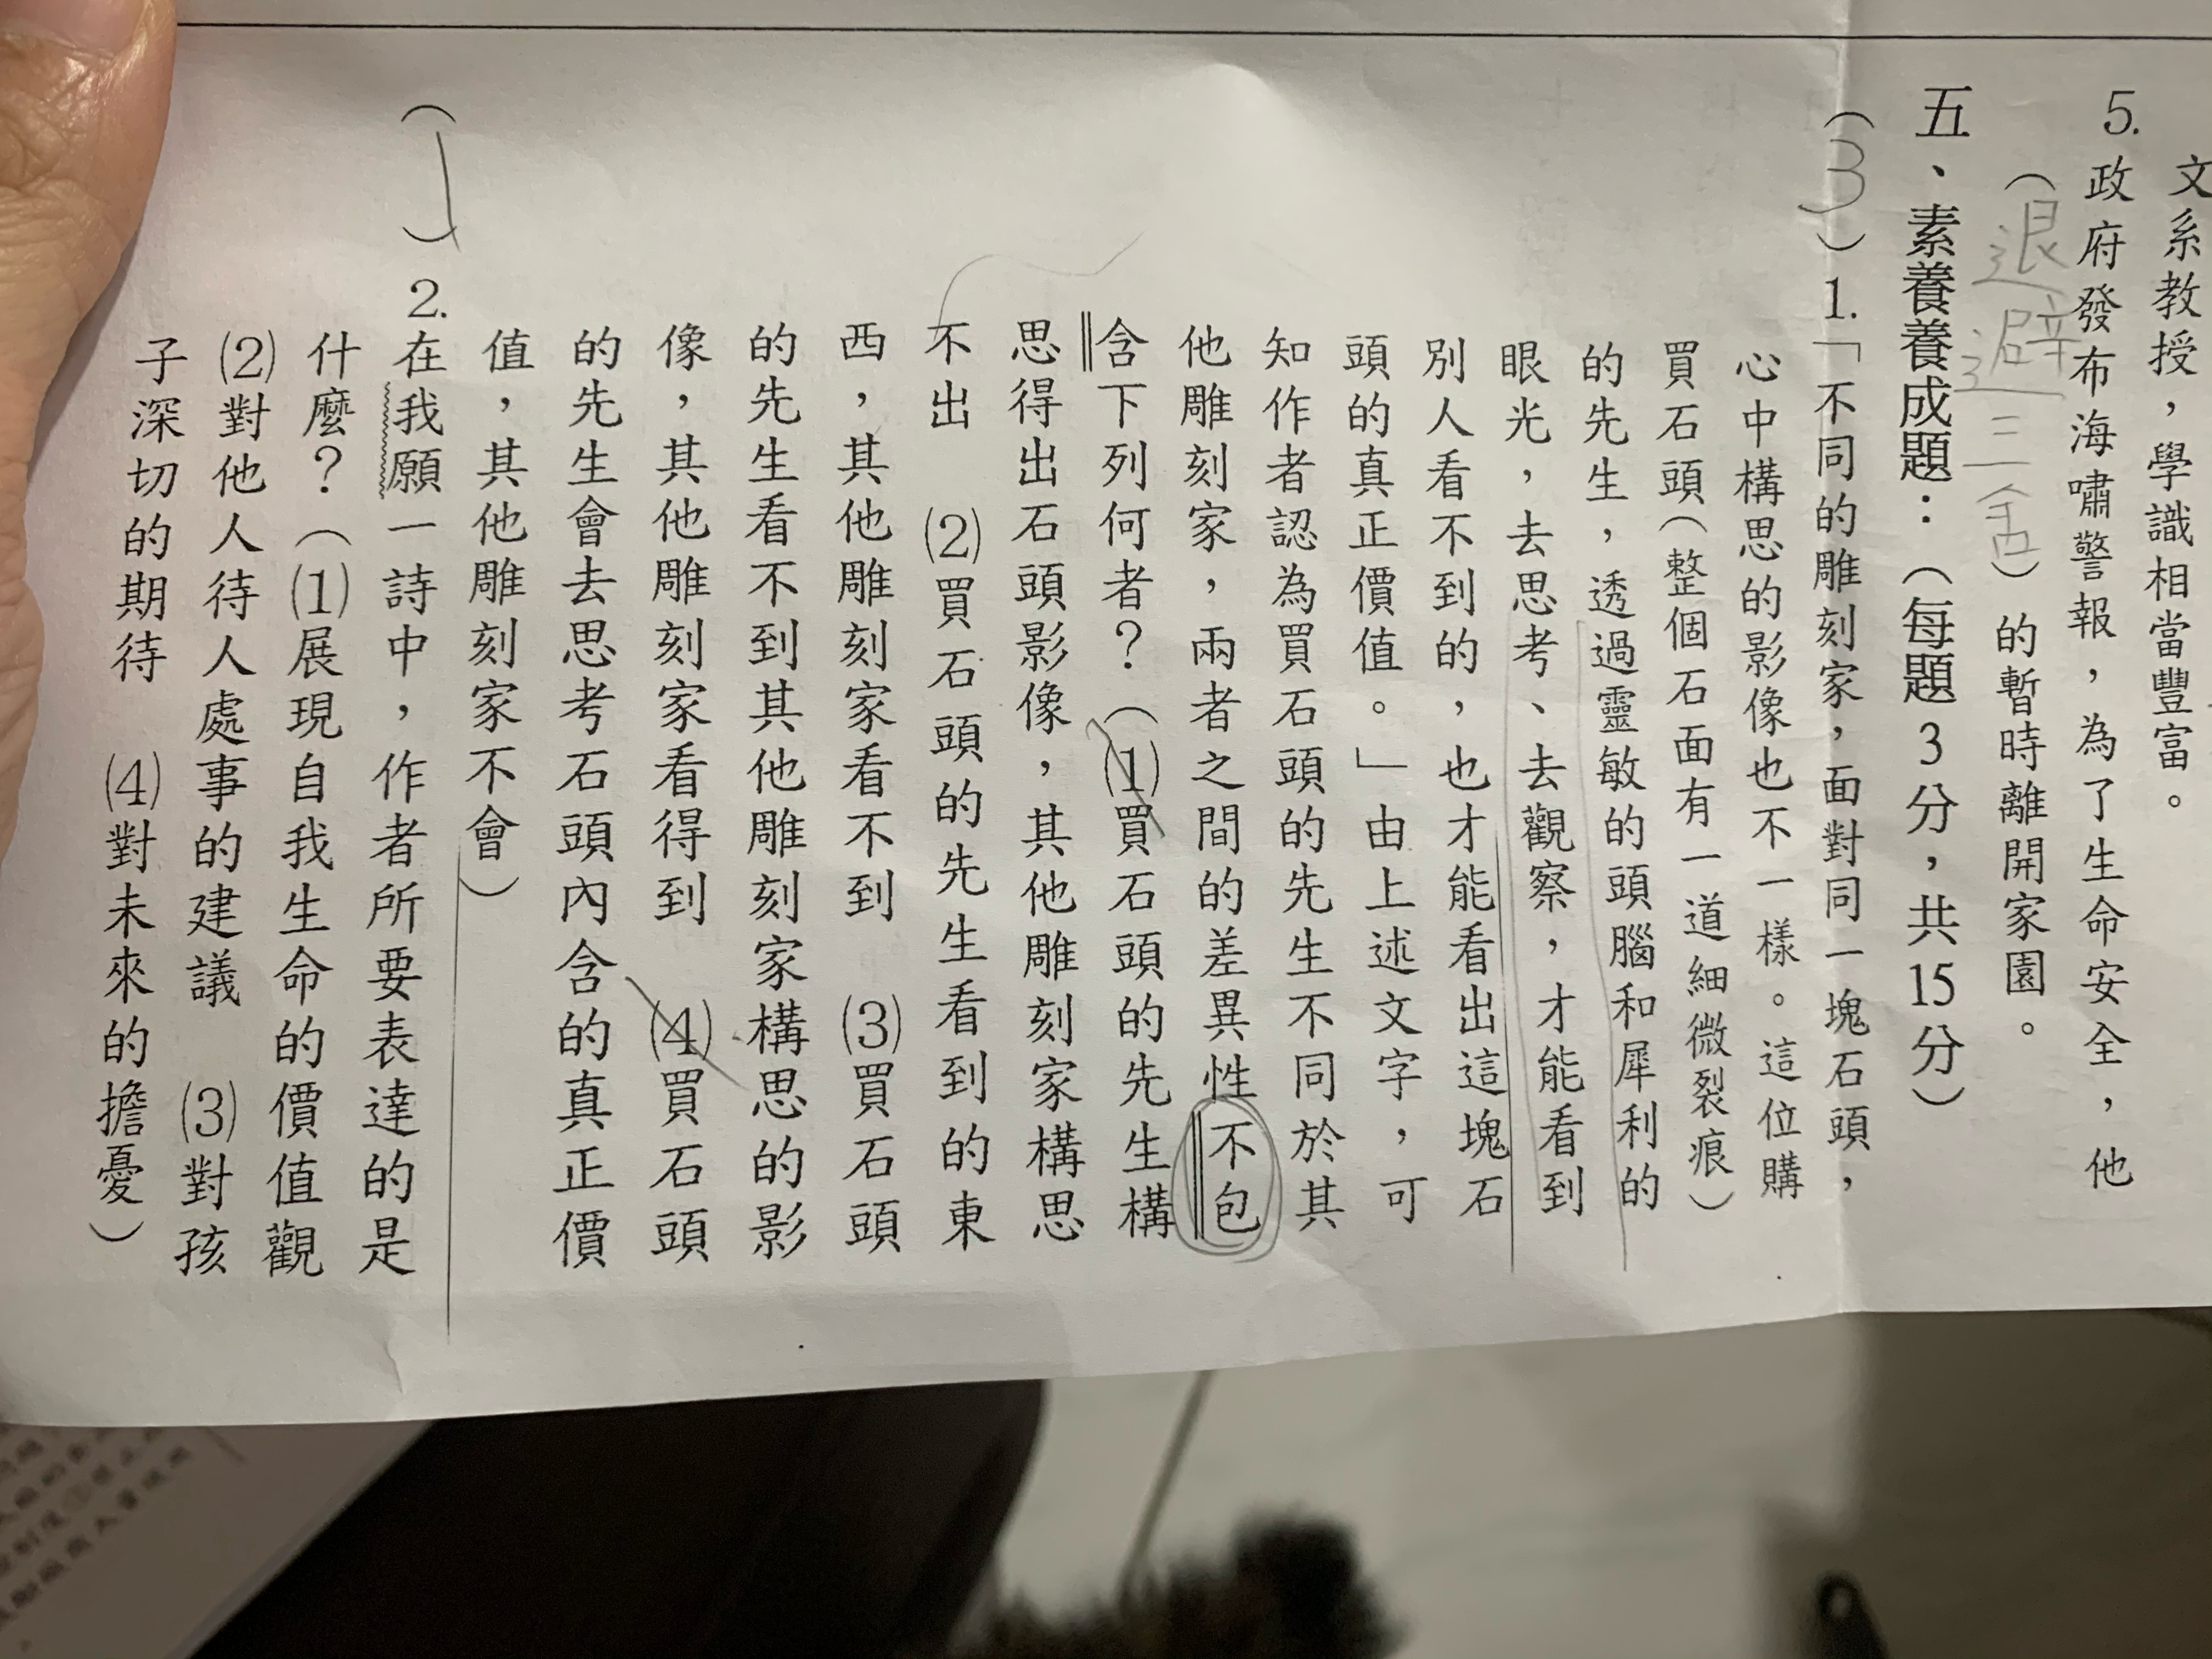 文系教授，學識相當豐富。
5.政府發布海嘯警報，為了生命安全，他
（退避三舍）的暫時離開家園。
五、素養養成題：（每題3分，共15分）
（3）1.「不同的雕刻家，面對同一塊石頭，
心中構思的影像也不一樣。這位購
買石頭（整個石面有一道細微裂痕）
的先生，透過靈敏的頭腦和犀利的
眼光，去思考、去觀察，才能看到
別人看不到的，也才能看出這塊石
頭的真正價值。」由上述文字，可
知作者認為買石頭的先生不同於其
他雕刻家，兩者之間的差異性不包
含下列何者？（⑴買石頭的先生構
思得出石頭影像，其他雕刻家構思
不出　⑵買石頭的先生看到的東
西，其他雕刻家看不到　⑶買石頭
的先生看不到其他雕刻家構思的影
像，其他雕刻家看得到　⑷買石頭
的先生會去思考石頭內含的真正價
值，其他雕刻家不會）
（1）2.在我願一詩中，作者所要表達的是
什麼？（⑴展現自我生命的價值觀
⑵對他人待人處事的建議　⑶對孩
子深切的期待　⑷對未來的擔憂）